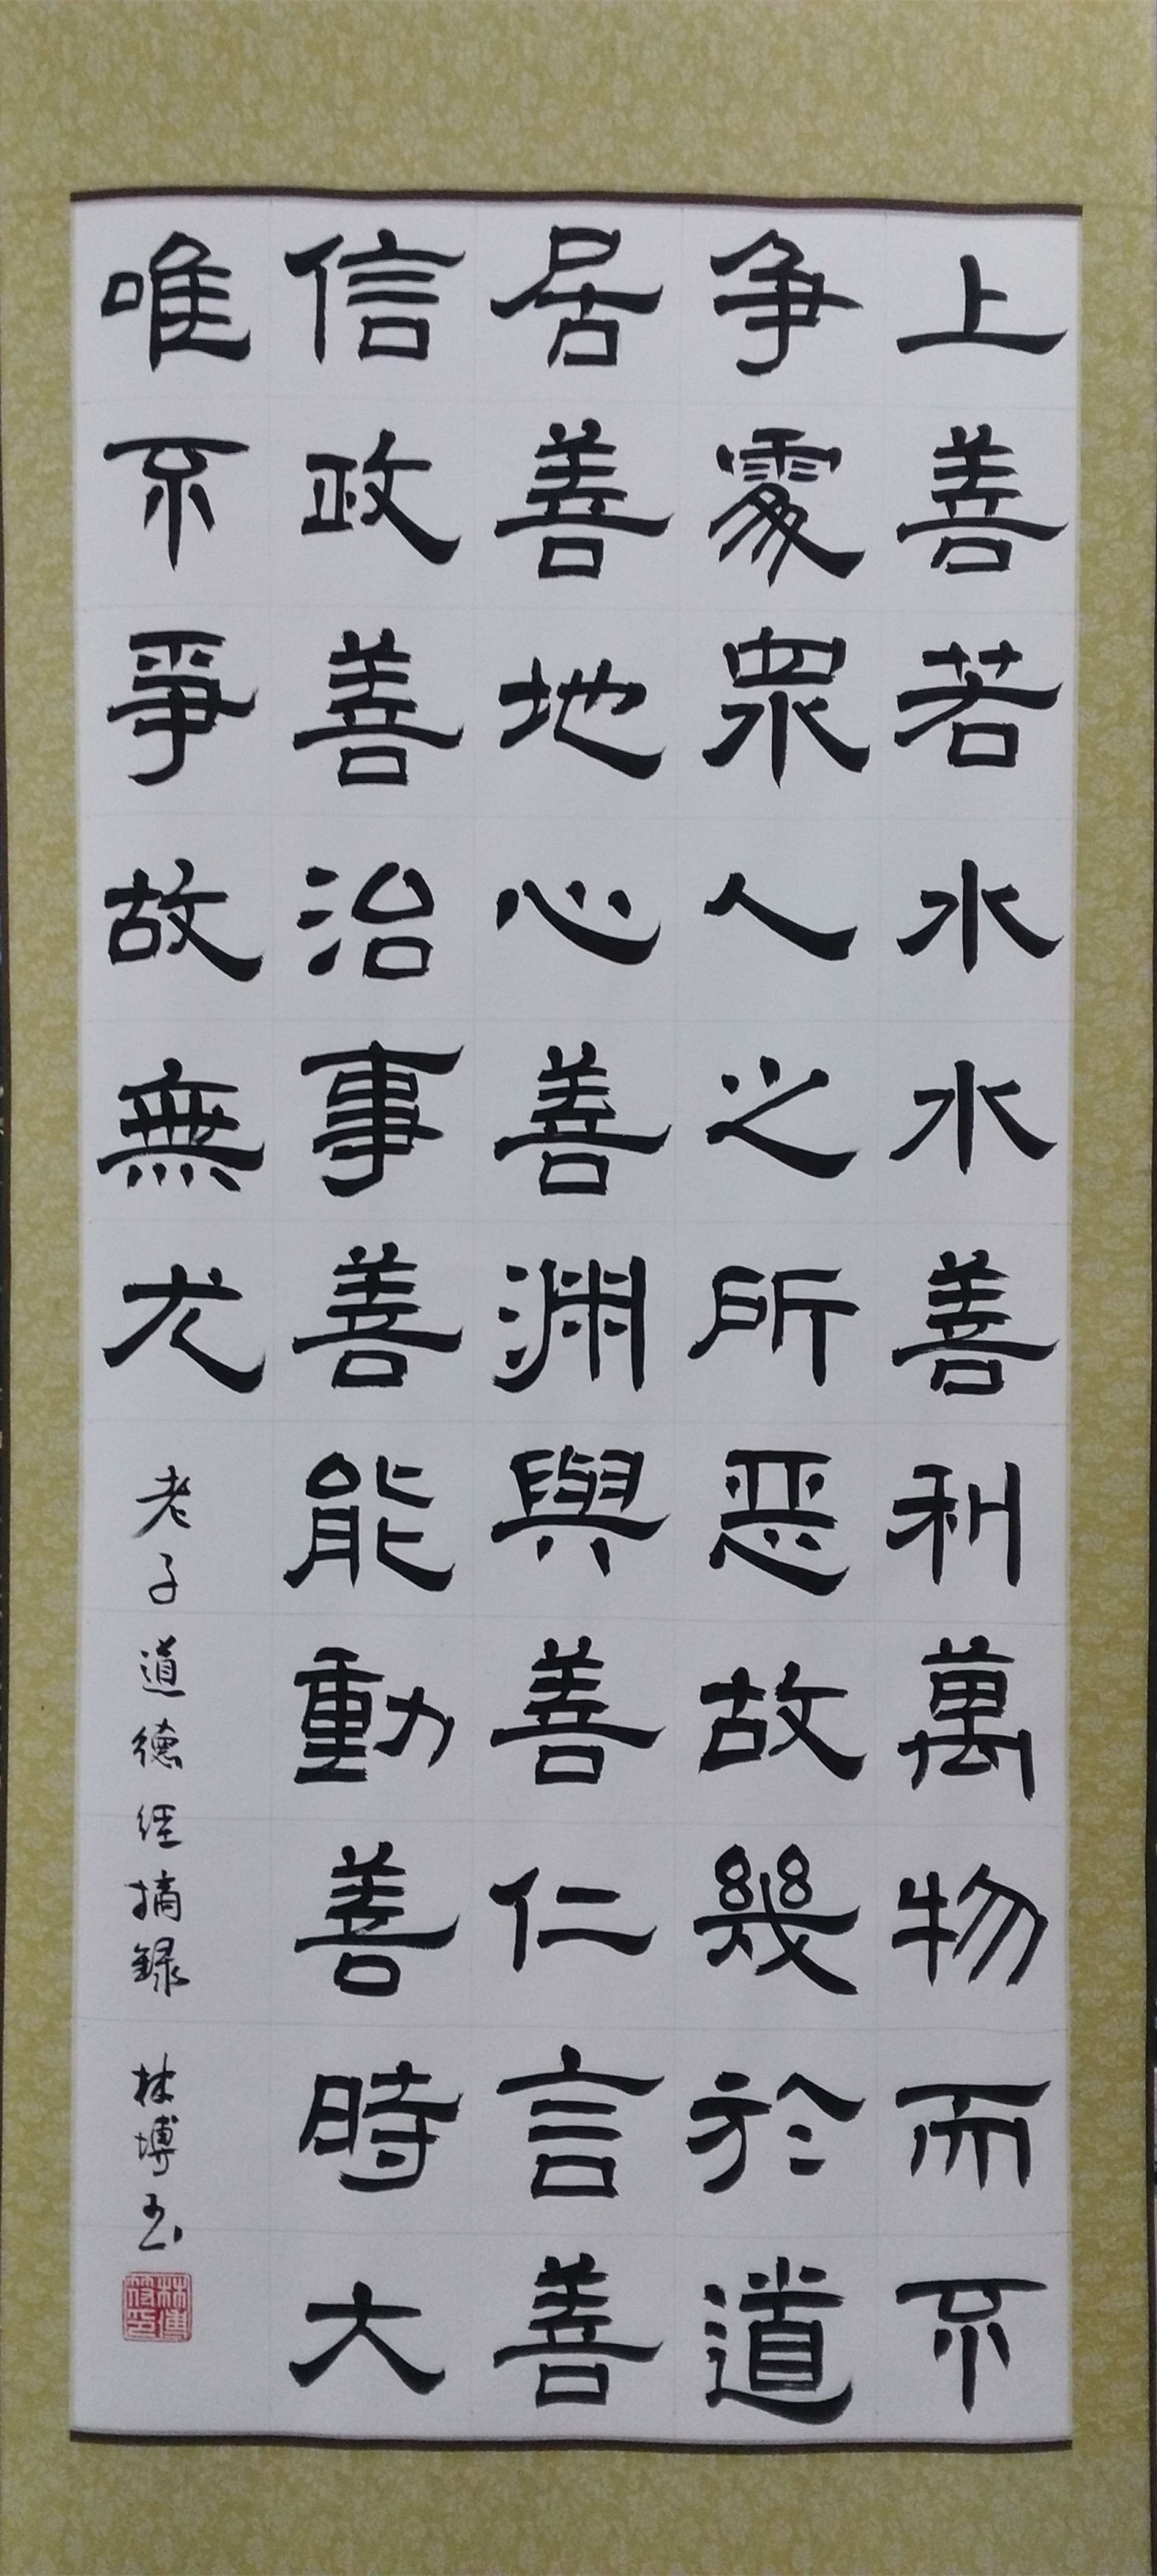 上善若水水善利萬物而不
争處衆人之所惡故幾於道
居善地心善渊與善仁言善
信政善治事善能動善時大
唯不爭故無尤
老子道德經摘録
林博